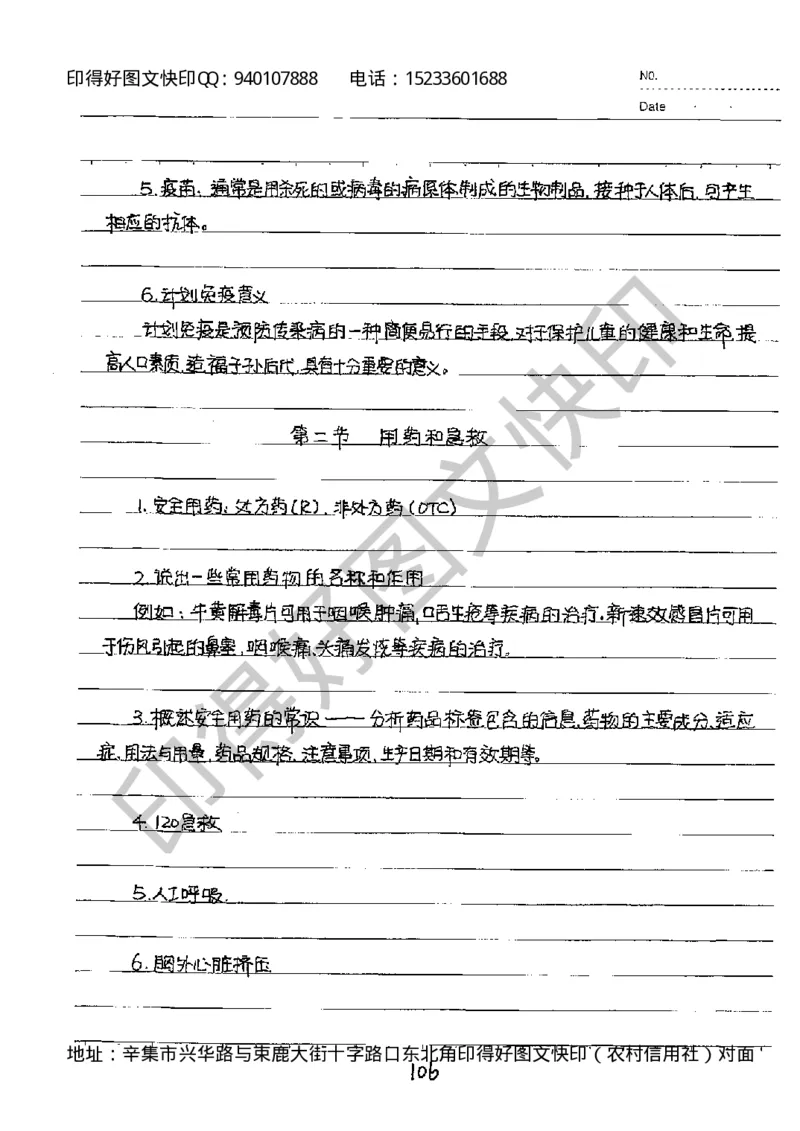 印得好图文快印QQ：940107888 电话：15233601688
NO.
Date
5.疫苗：通常是用杀死的或病毒的病原体制成的生物制品，接种于人体后，可产生
相应的抗体。
6.计划免疫意义
计划免疫是预防传染病的一种简便易行的手段，对于保护儿童的健康和生命，提
高人口素质，造福子孙后代，具有十分重要的意义。
第二节 用药和急救
1.安全用药：处方药(R)，非处方药(OTC)
2.说出一些常用药物的名称和作用
例如：牛黄解毒片可用于咽喉肿痛，口舌生疮等疾病的治疗。新速效感冒片可用
于伤风引起的鼻塞，咽喉痛、头痛发烧等疾病的治疗。
3.概述安全用药的常识——分析药品标签包含的信息，药物的主要成分、适应
症、用法与用量，药品规格、注意事项、生产日期和有效期等。
4.120急救
5.人工呼吸
6.胸外心脏挤压
地址：辛集市兴华路与束鹿大街十字路口东北角印得好图文快印（农村信用社）对面
106
印得好图文快印